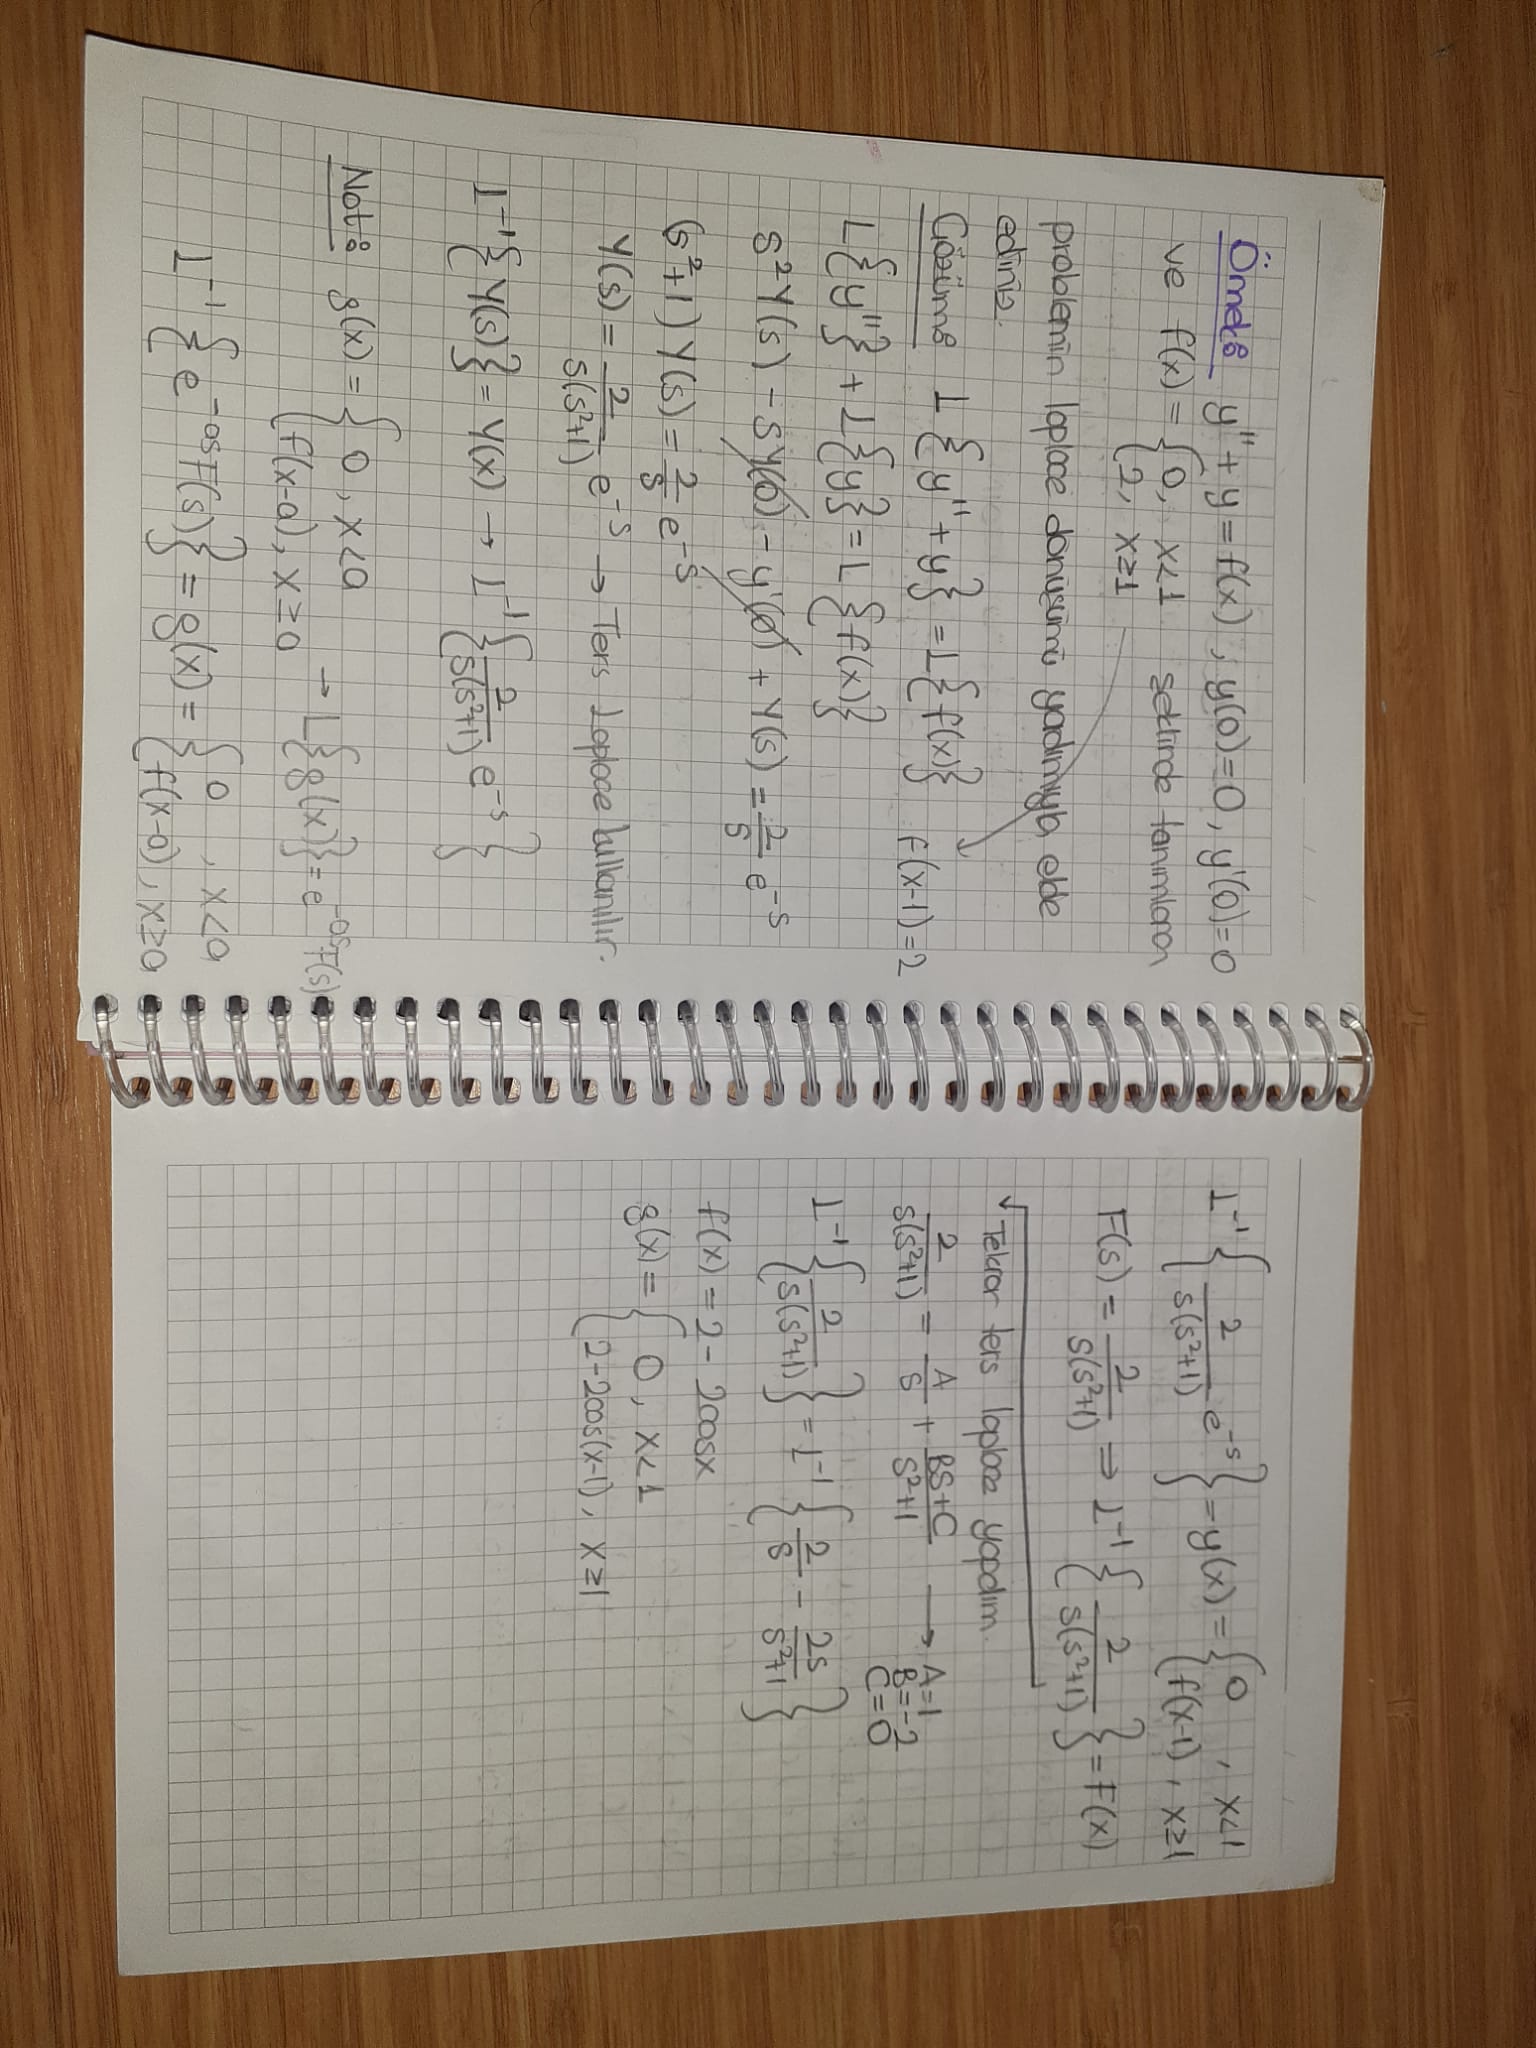 Örnek: y'' + y = f(x), y(0)=0, y'(0)=0
ve f(x) = { 0, x<1 şeklinde tanımlanan
2, x≥1
problemin laplace dönüşümü yardımıyla elde
ediniz.
Çözüm: L{y''+y} = L{f(x)}
f(x-1)=2
L{y''} + L{y} = L{f(x)}
s²Y(s) - sy(0) - y'(0) + Y(s) = 2/s e^-s
(s²+1) Y(s) = 2/s e^-s
Y(s) = 2/s(s²+1) e^-s → Ters Laplace kullanılır.
L^-1{Y(s)} = Y(x) → L^-1{2/s(s²+1) e^-s}
Not: g(x) = { 0, x<a
f(x-a), x≥a → L{g(x)} = e^-as F(s)
L^-1{e^-as F(s)} = g(x) = { 0, x<a
f(x-a), x≥a
L^-1{2/s(s²+1) e^-s} = y(x) = { 0, x<1
f(x-1), x≥1
F(s) = 2/s(s²+1) ⇒ L^-1{2/s(s²+1)} = F(x)
Tekrar ters laplace yapdım.
2/s(s²+1) = A/s + BS+C/s²+1 → A=1
B=-2
C=0
L^-1{2/s(s²+1)} = L^-1{2/s - 2s/s²+1}
f(x) = 2 - 2cosx
g(x) = { 0, x<1
2-2cos(x-1), x≥1